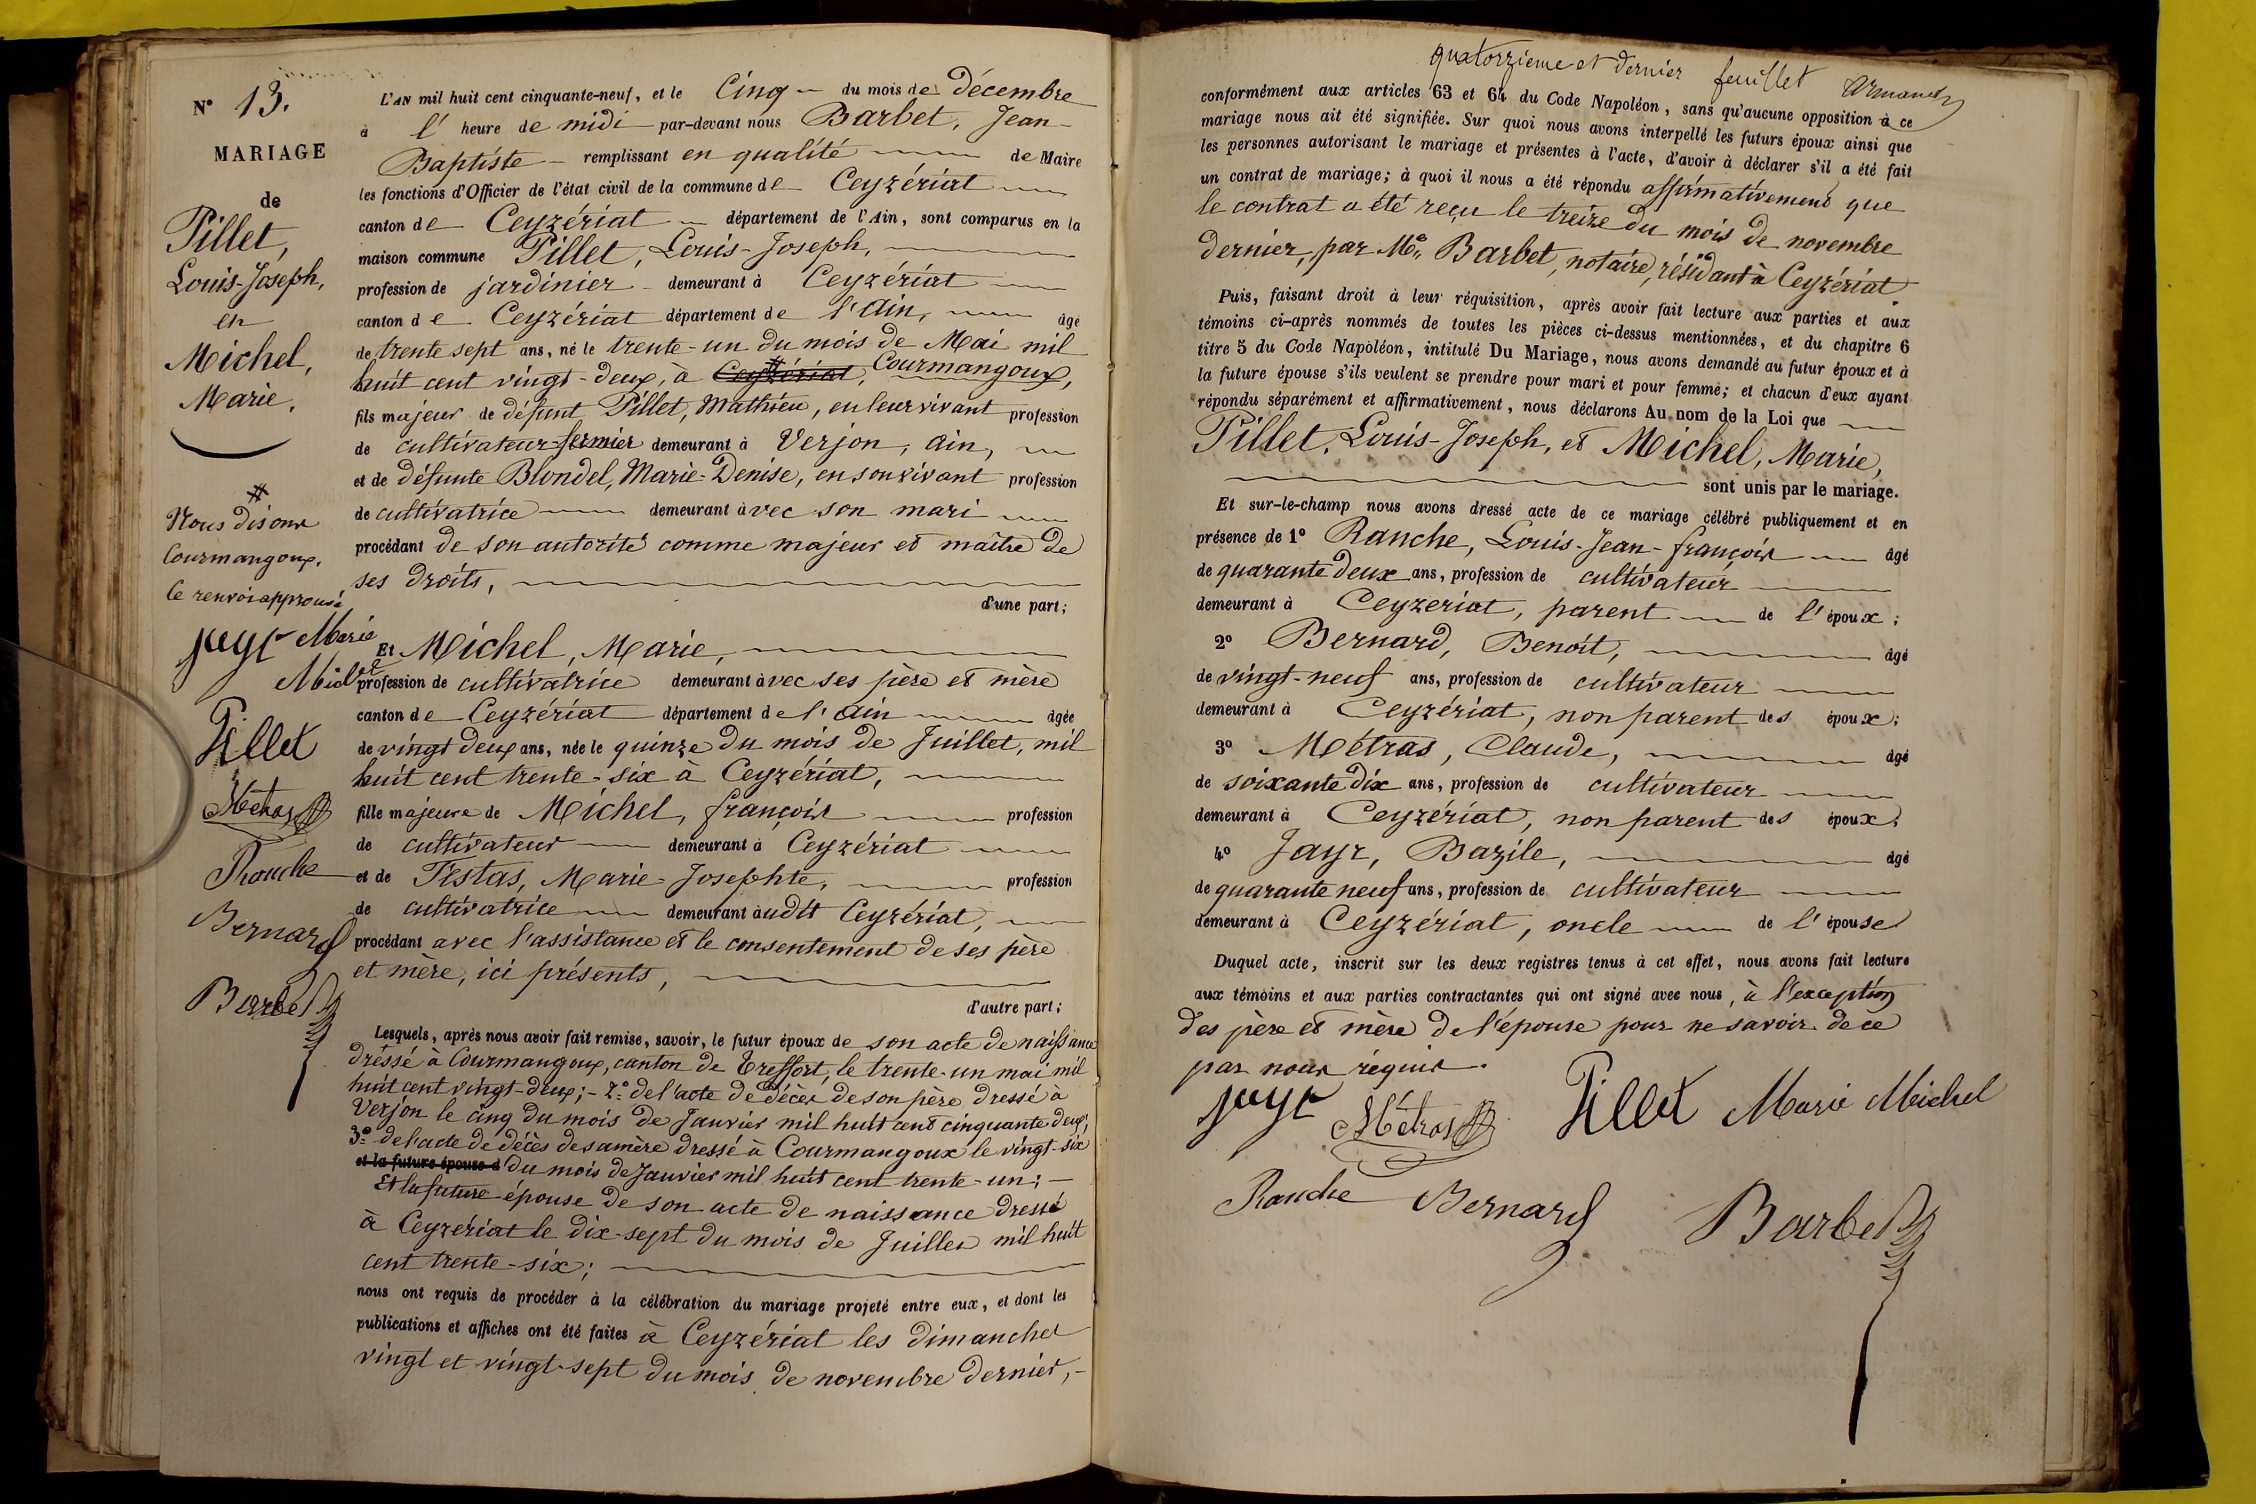 N° 13.
MARIAGE
de
Pillet,
Louis-Joseph,
et
Michel,
Marie.
#
Nous disons
Courmangoux.
le renvoi approuvé
Jayr Marie
Michel
Pillet
Métras
Ranche
Bernard
Barbet
L'AN mil huit cent cinquante-neuf, et le Cinq du mois de décembre
à l' heure de midi par-devant nous Barbet, Jean-
Baptiste remplissant en qualité de Maire
les fonctions d'Officier de l'état civil de la commune de Ceyzériat
canton de Ceyzériat département de l'Ain, sont comparus en la
maison commune Pillet, Louis-Joseph,
profession de jardinier demeurant à Ceyzériat
canton de Ceyzériat département de l'Ain, âgé
de trente sept ans, né le trente-un du mois de Mai mil
huit cent vingt-deux, à # Ceyzériat, Courmangoux,
fils majeur de défunt Pillet, Mathieu, en leur vivant profession
de cultivateur-fermier demeurant à Verjon, Ain,
et de défunte Blondel, Marie-Denise, en son vivant profession
de cultivatrice demeurant avec son mari
procédant de son autorité comme majeur et maître de
ses droits,
d'une part;
Et Michel, Marie,
profession de cultivatrice demeurant avec ses père et mère
canton de Ceyzériat département de l'Ain âgée
de vingt deux ans, née le quinze du mois de Juillet, mil
huit cent trente-six à Ceyzériat,
fille majeure de Michel, françois profession
de cultivateur demeurant à Ceyzériat
et de Testas, Marie-Josephte, profession
de cultivatrice demeurant audit Ceyzériat,
procédant avec l'assistance et le consentement de ses père
et mère, ici présents,
d'autre part;
Lesquels, après nous avoir fait remise, savoir, le futur époux de son acte de naissance
dressé à Courmangoux, canton de Treffort, le trente-un mai mil
huit cent vingt-deux; - 2° de l'acte de décès de son père dressé à
Verjon le cinq du mois de Janvier mil huit cent cinquante deux;
3° de l'acte de décès de sa mère dressé à Courmangoux le vingt-six
et la future épouse d du mois de Janvier mil huit cent trente-un; -
Et la future épouse de son acte de naissance dressé
à Ceyzériat le dix-sept du mois de Juillet mil huit
cent trente-six;
nous ont requis de procéder à la célébration du mariage projeté entre eux, et dont les
publications et affiches ont été faites à Ceyzériat les dimanches
vingt et vingt-sept du mois de novembre dernier, -
quatorzième et dernier feuillet Armand
conformément aux articles 63 et 64 du Code Napoléon, sans qu'aucune opposition à ce
mariage nous ait été signifiée. Sur quoi nous avons interpellé les futurs époux ainsi que
les personnes autorisant le mariage et présentes à l'acte, d'avoir à déclarer s'il a été fait
un contrat de mariage; à quoi il nous a été répondu affirmativement que
le contrat a été reçu le treize du mois de novembre
dernier, par Me Barbet, notaire, résidant à Ceyzériat.
Puis, faisant droit à leur réquisition, après avoir fait lecture aux parties et aux
témoins ci-après nommés de toutes les pièces ci-dessus mentionnées, et du chapitre 6
titre 5 du Code Napoléon, intitulé Du Mariage, nous avons demandé au futur époux et à
la future épouse s'ils veulent se prendre pour mari et pour femme; et chacun d'eux ayant
répondu séparément et affirmativement, nous déclarons Au nom de la Loi que
Pillet, Louis-Joseph, et Michel, Marie,
sont unis par le mariage.
Et sur-le-champ nous avons dressé acte de ce mariage célébré publiquement et en
présence de 1° Ranche, Louis-Jean-françois âgé
de quarante deux ans, profession de cultivateur
demeurant à Ceyzeriat, parent de l'époux;
2° Bernard, Benoît, âgé
de vingt-neuf ans, profession de cultivateur
demeurant à Ceyzériat, non parent des époux;
3° Métras, Claude, âgé
de soixante dix ans, profession de cultivateur
demeurant à Ceyzériat, non parent des époux;
4° Jayr, Bazile, âgé
de quarante neuf ans, profession de cultivateur
demeurant à Ceyzériat, oncle de l'épouse
Duquel acte, inscrit sur les deux registres tenus à cet effet, nous avons fait lecture
aux témoins et aux parties contractantes qui ont signé avec nous, à l'exception
des père et mère de l'épouse pour ne savoir de ce
par nous réquis.
Jayr Métras Pillet Marie Michel
Ranche Bernard Barbet